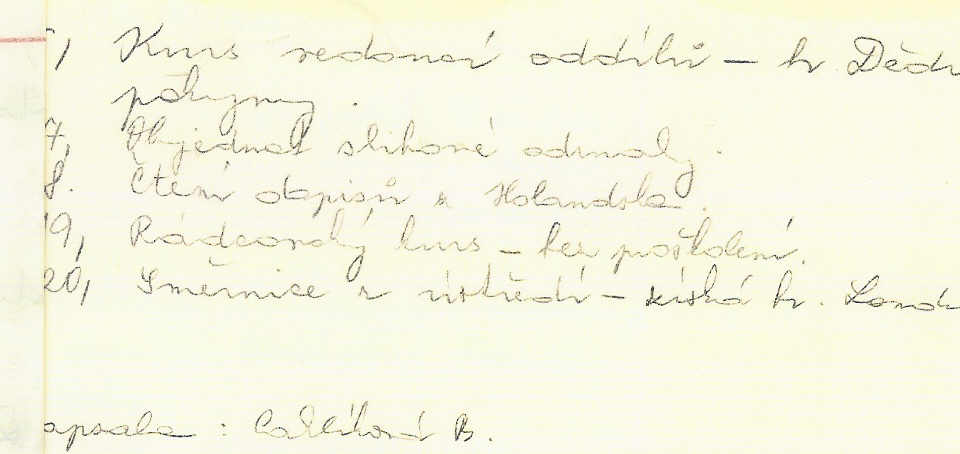 Kurs vedoucí oddílů – br. Dědi
pokyny.
7, Objednat slibové odznaky.
8. Čtení dopisů z Holandska.
19, Rádcovský kurs – bez proškolení.
20, Směrnice z ústředí – získá br. Land
apsala : B.